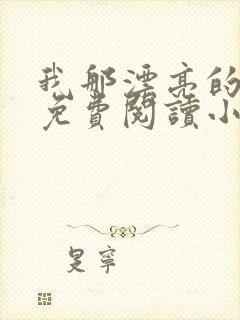 我那漂亮的
免費閱讀小
是寧